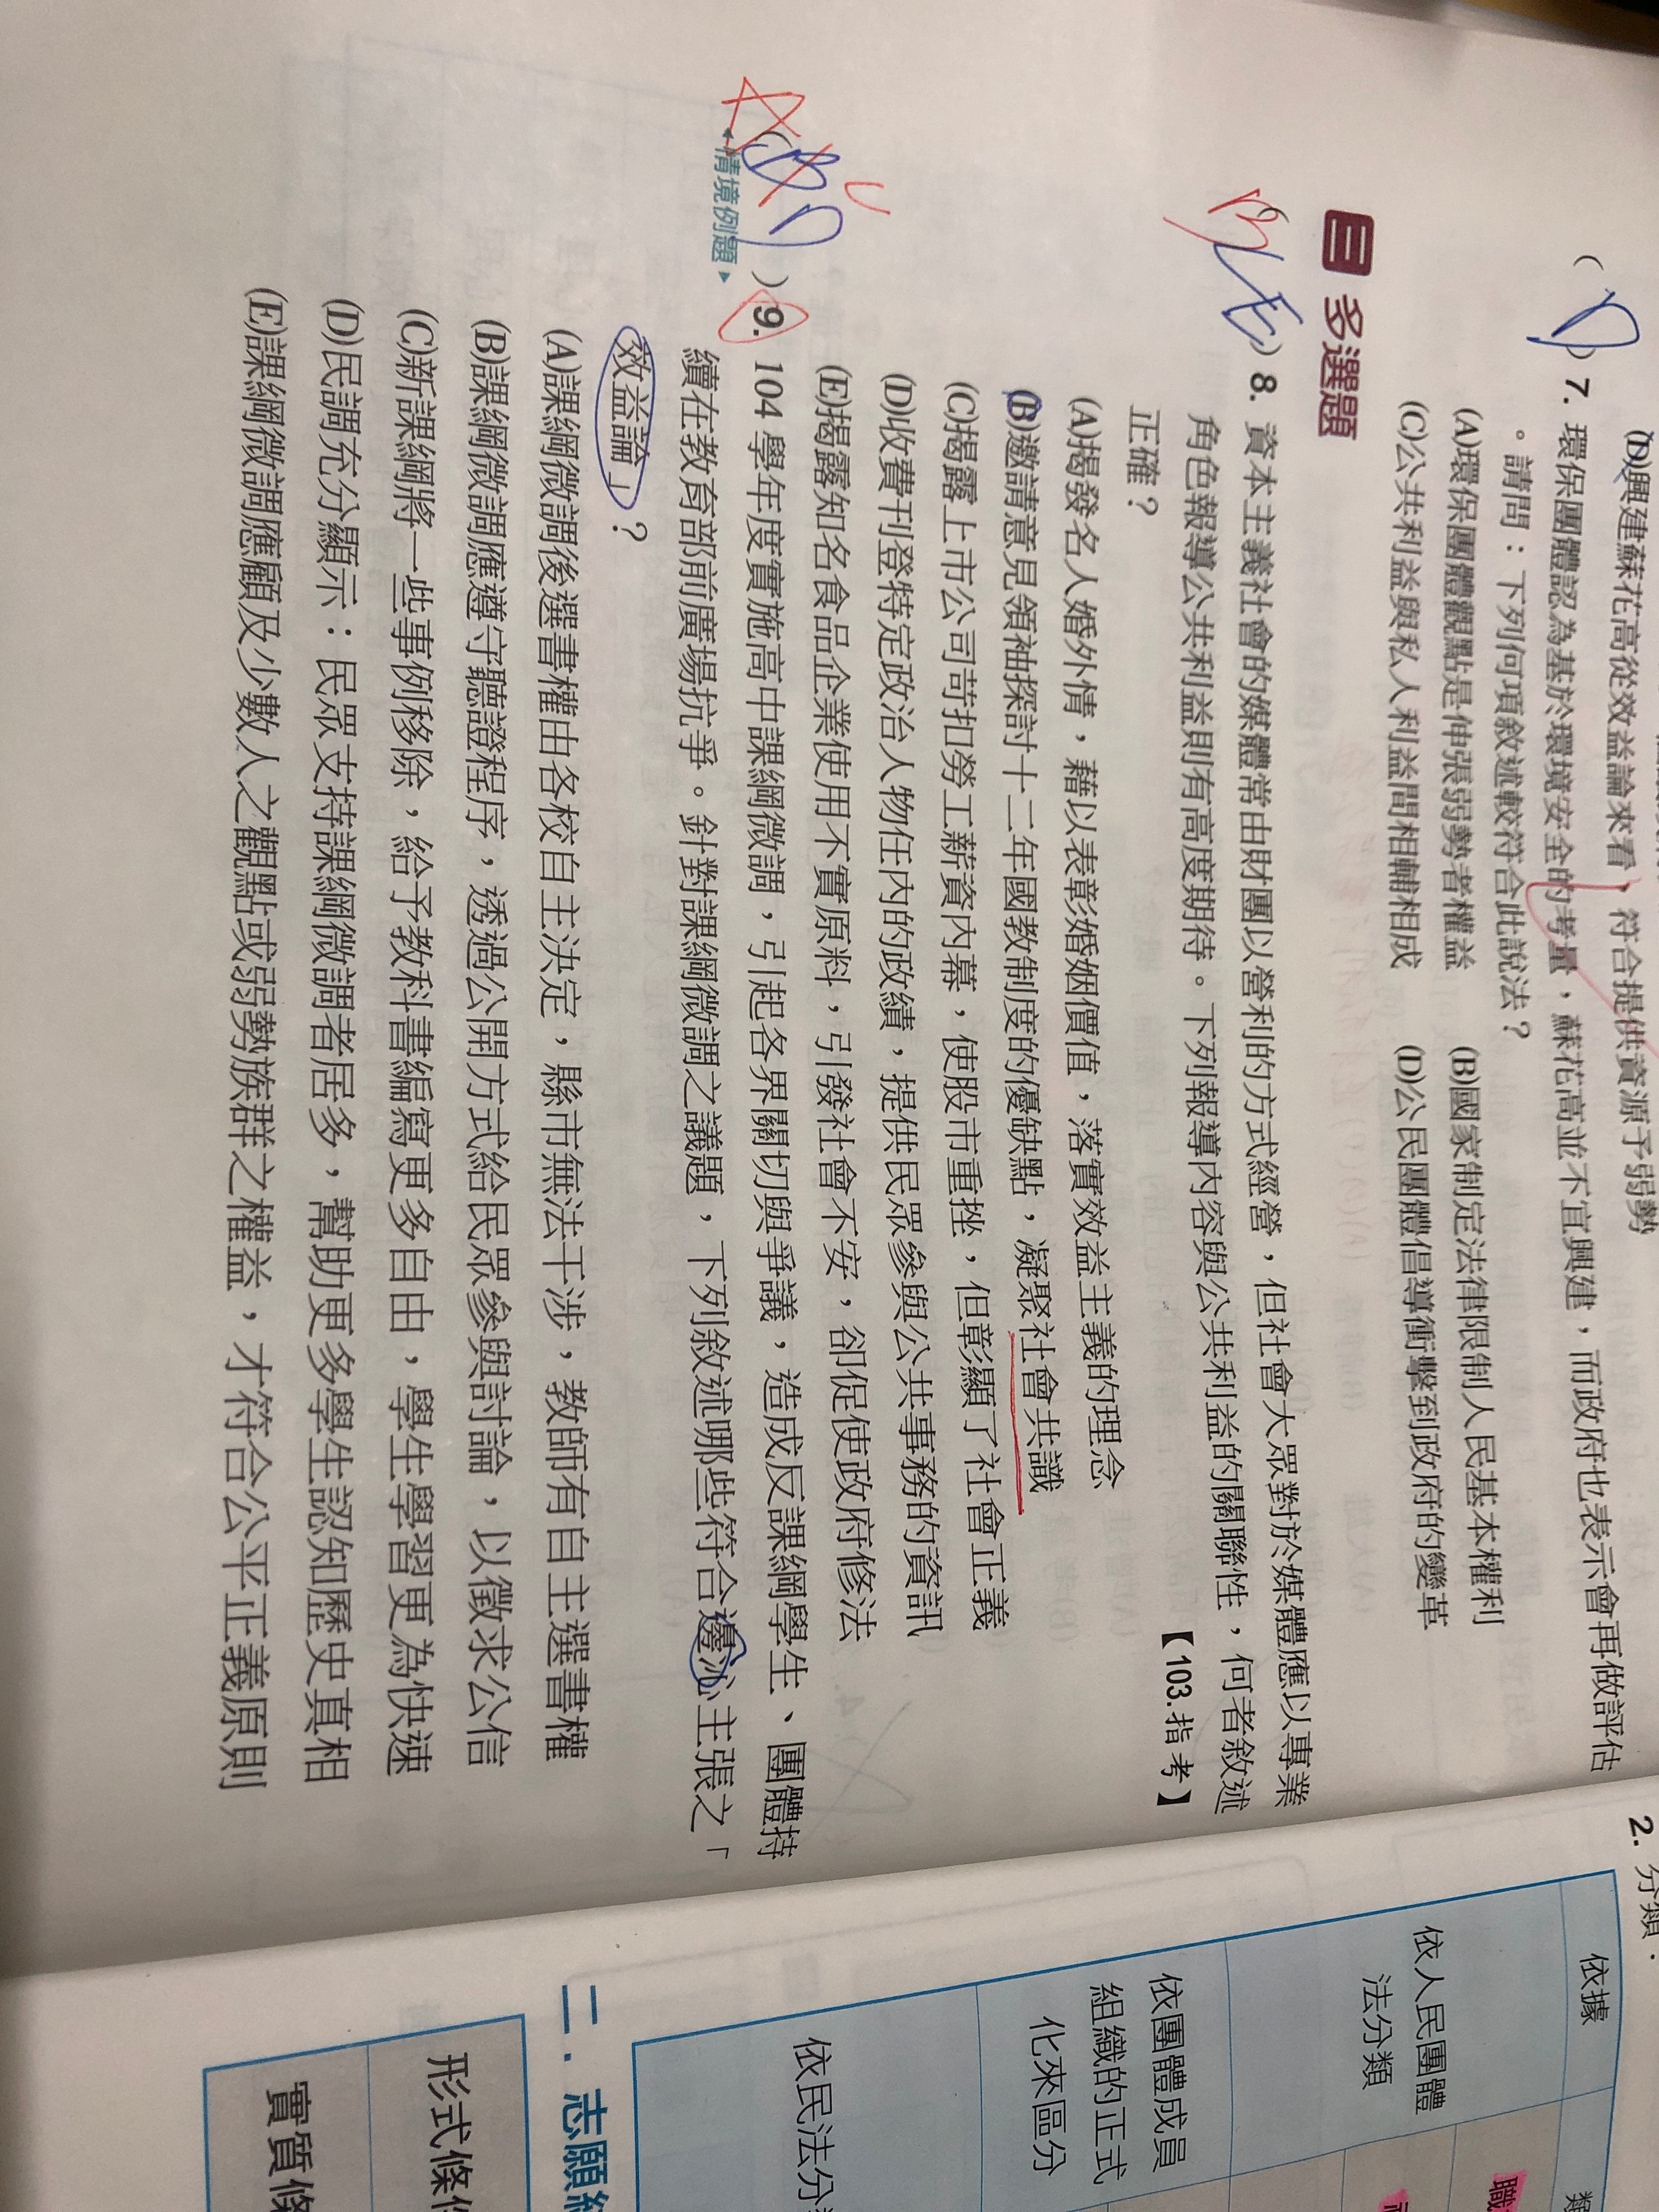 (D)興建蘇花高從效益論來看，符合提供資源予弱勢
( D ) 7. 環保團體認為基於環境安全的考量，蘇花高並不宜興建，而政府也表示會再做評估
。請問：下列何項敘述較符合此說法？
(A)環保團體觀點是伸張弱勢者權益 (B)國家制定法律限制人民基本權利
(C)公共利益與私人利益間相輔相成 (D)公民團體倡導衝擊到政府的變革
三 多選題
) 8. 資本主義社會的媒體常由財團以營利的方式經營，但社會大眾對於媒體應以專業
角色報導公共利益則有高度期待。下列報導內容與公共利益的關聯性，何者敘述
正確？ 【103.指考】
(A)揭發名人婚外情，藉以表彰婚姻價值，落實效益主義的理念
(B)邀請意見領袖探討十二年國教制度的優缺點，凝聚社會共識
(C)揭露上市公司苛扣勞工薪資內幕，使股市重挫，但彰顯了社會正義
(D)收費刊登特定政治人物任內的政績，提供民眾參與公共事務的資訊
(E)揭露知名食品企業使用不實原料，引發社會不安，卻促使政府修法
( B D ) 9. 104 學年度實施高中課綱微調，引起各界關切與爭議，造成反課綱學生、團體持
情境例題
續在教育部前廣場抗爭。針對課綱微調之議題，下列敘述哪些符合邊沁主張之「
效益論」？
(A)課綱微調後選書權由各校自主決定，縣市無法干涉，教師有自主選書權
(B)課綱微調應遵守聽證程序，透過公開方式給民眾參與討論，以徵求公信
(C)新課綱將一些事例移除，給予教科書編寫更多自由，學生學習更為快速
(D)民調充分顯示：民眾支持課綱微調者居多，幫助更多學生認知歷史真相
(E)課綱微調應顧及少數人之觀點或弱勢族群之權益，才符合公平正義原則
2. 分類：
依據
類
依人民團體
法分類
職
依團體成員
組織的正式
化來區分
依民法分
二. 志願
形式條
實質